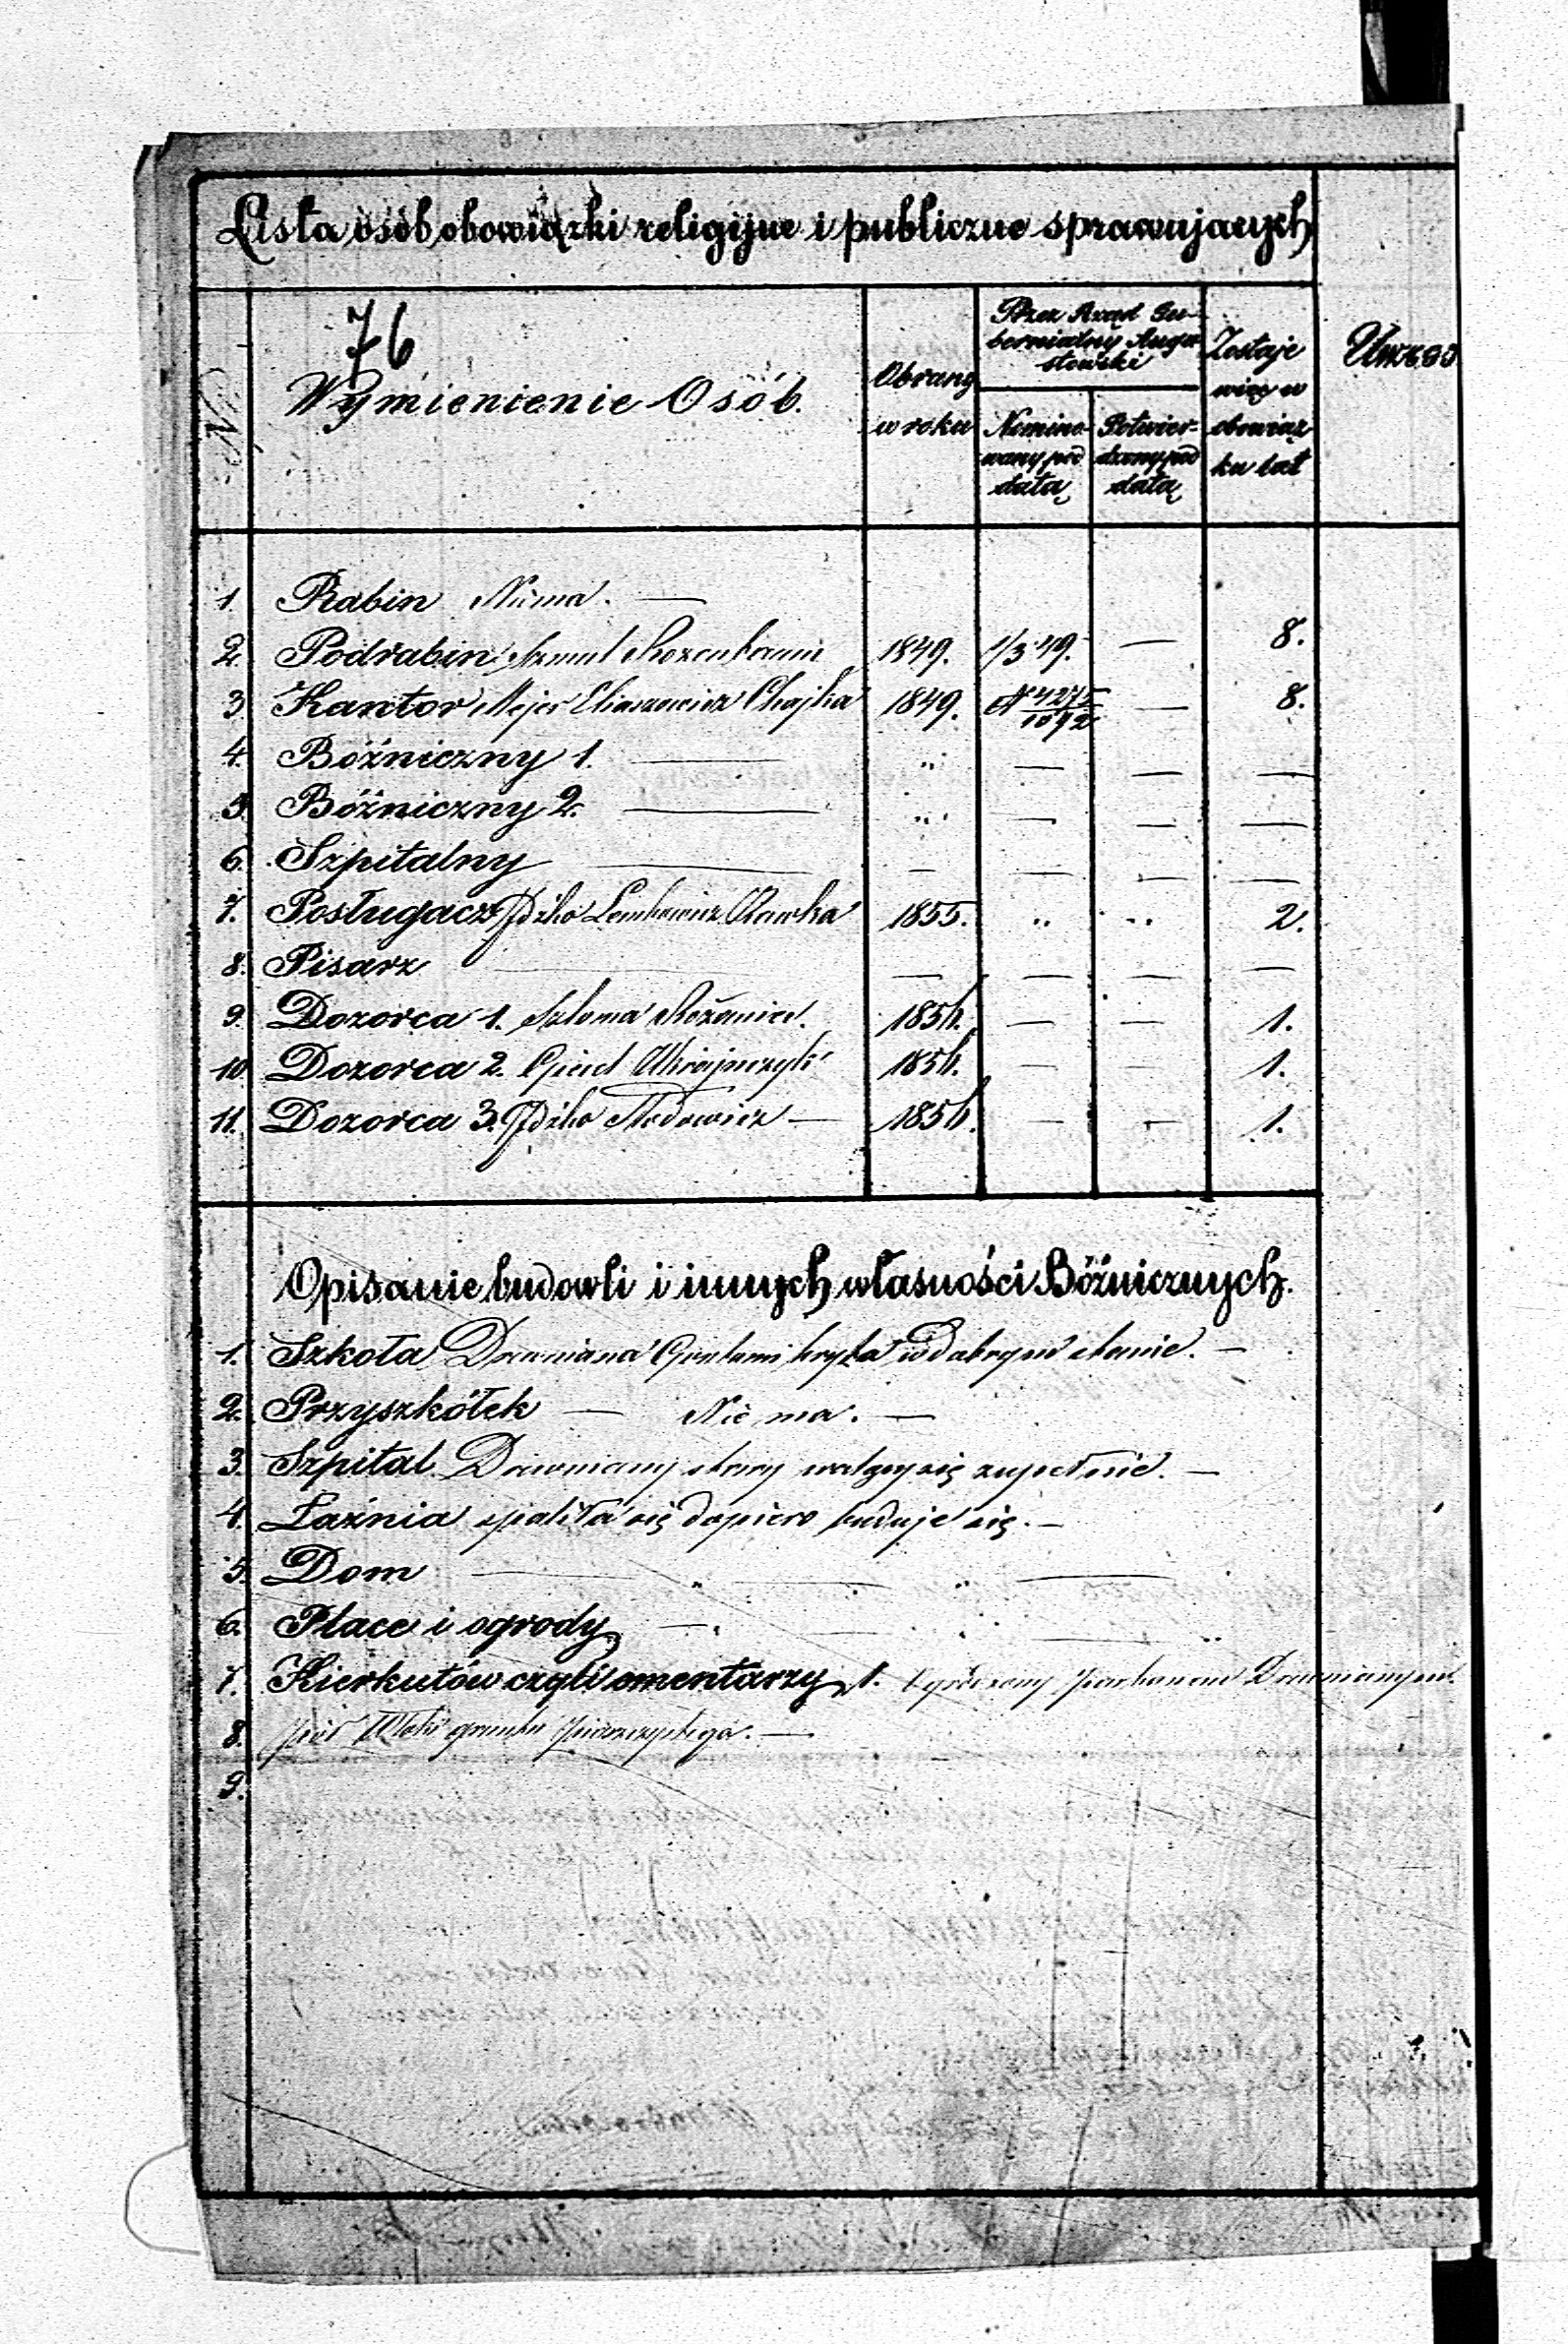 Lista osób obowiązki religijne i publiczne sprawujących
76
Nr.
Wymienienie Osób.
Obrany w roku
Przez Rząd Gubernialny Augustowski
Nominowany pod datą
Potwierdzony pod datą
Zostaje więc w obowiązku lat
1. Rabin Niema. —
2. Podrabin Szmul 1849. 1/3 49. — 8.
3. Kantor Mejer Eliaszewicz Chajka 1849. № 4275/1092 — 8.
4. Bóźniczny 1. — „ — — —
5. Bóźniczny 2. — „ — — —
6. Szpitalny — — — — —
7. Posługacz Idźko Lemkowicz Rawka 1855. „ „ 2.
8. Pisarz — — — — —
9. Dozorca 1. Szloma 1856. — — 1.
10. Dozorca 2. Ukrajńczyk 1856. — — 1.
11. Dozorca 3. Idźko — 1856. — — 1.
Opisanie budowli i innych własności Bóźnicznych.
1. Szkoła Drewniana Gontami kryta w dobrym stanie. —
2. Przyszkółek — Nie ma. —
3. Szpital Drewniany stary walący się zupełnie. —
4. Łaźnia spaliła się dopiero buduje się. —
5. Dom — „ — „ —
6. Place i ogrody — „ — „ — „
7. Kierkutów czyli cmentarzy 1. ogrodzony parkanem Drewnianym.
8. pół gruntu
9.